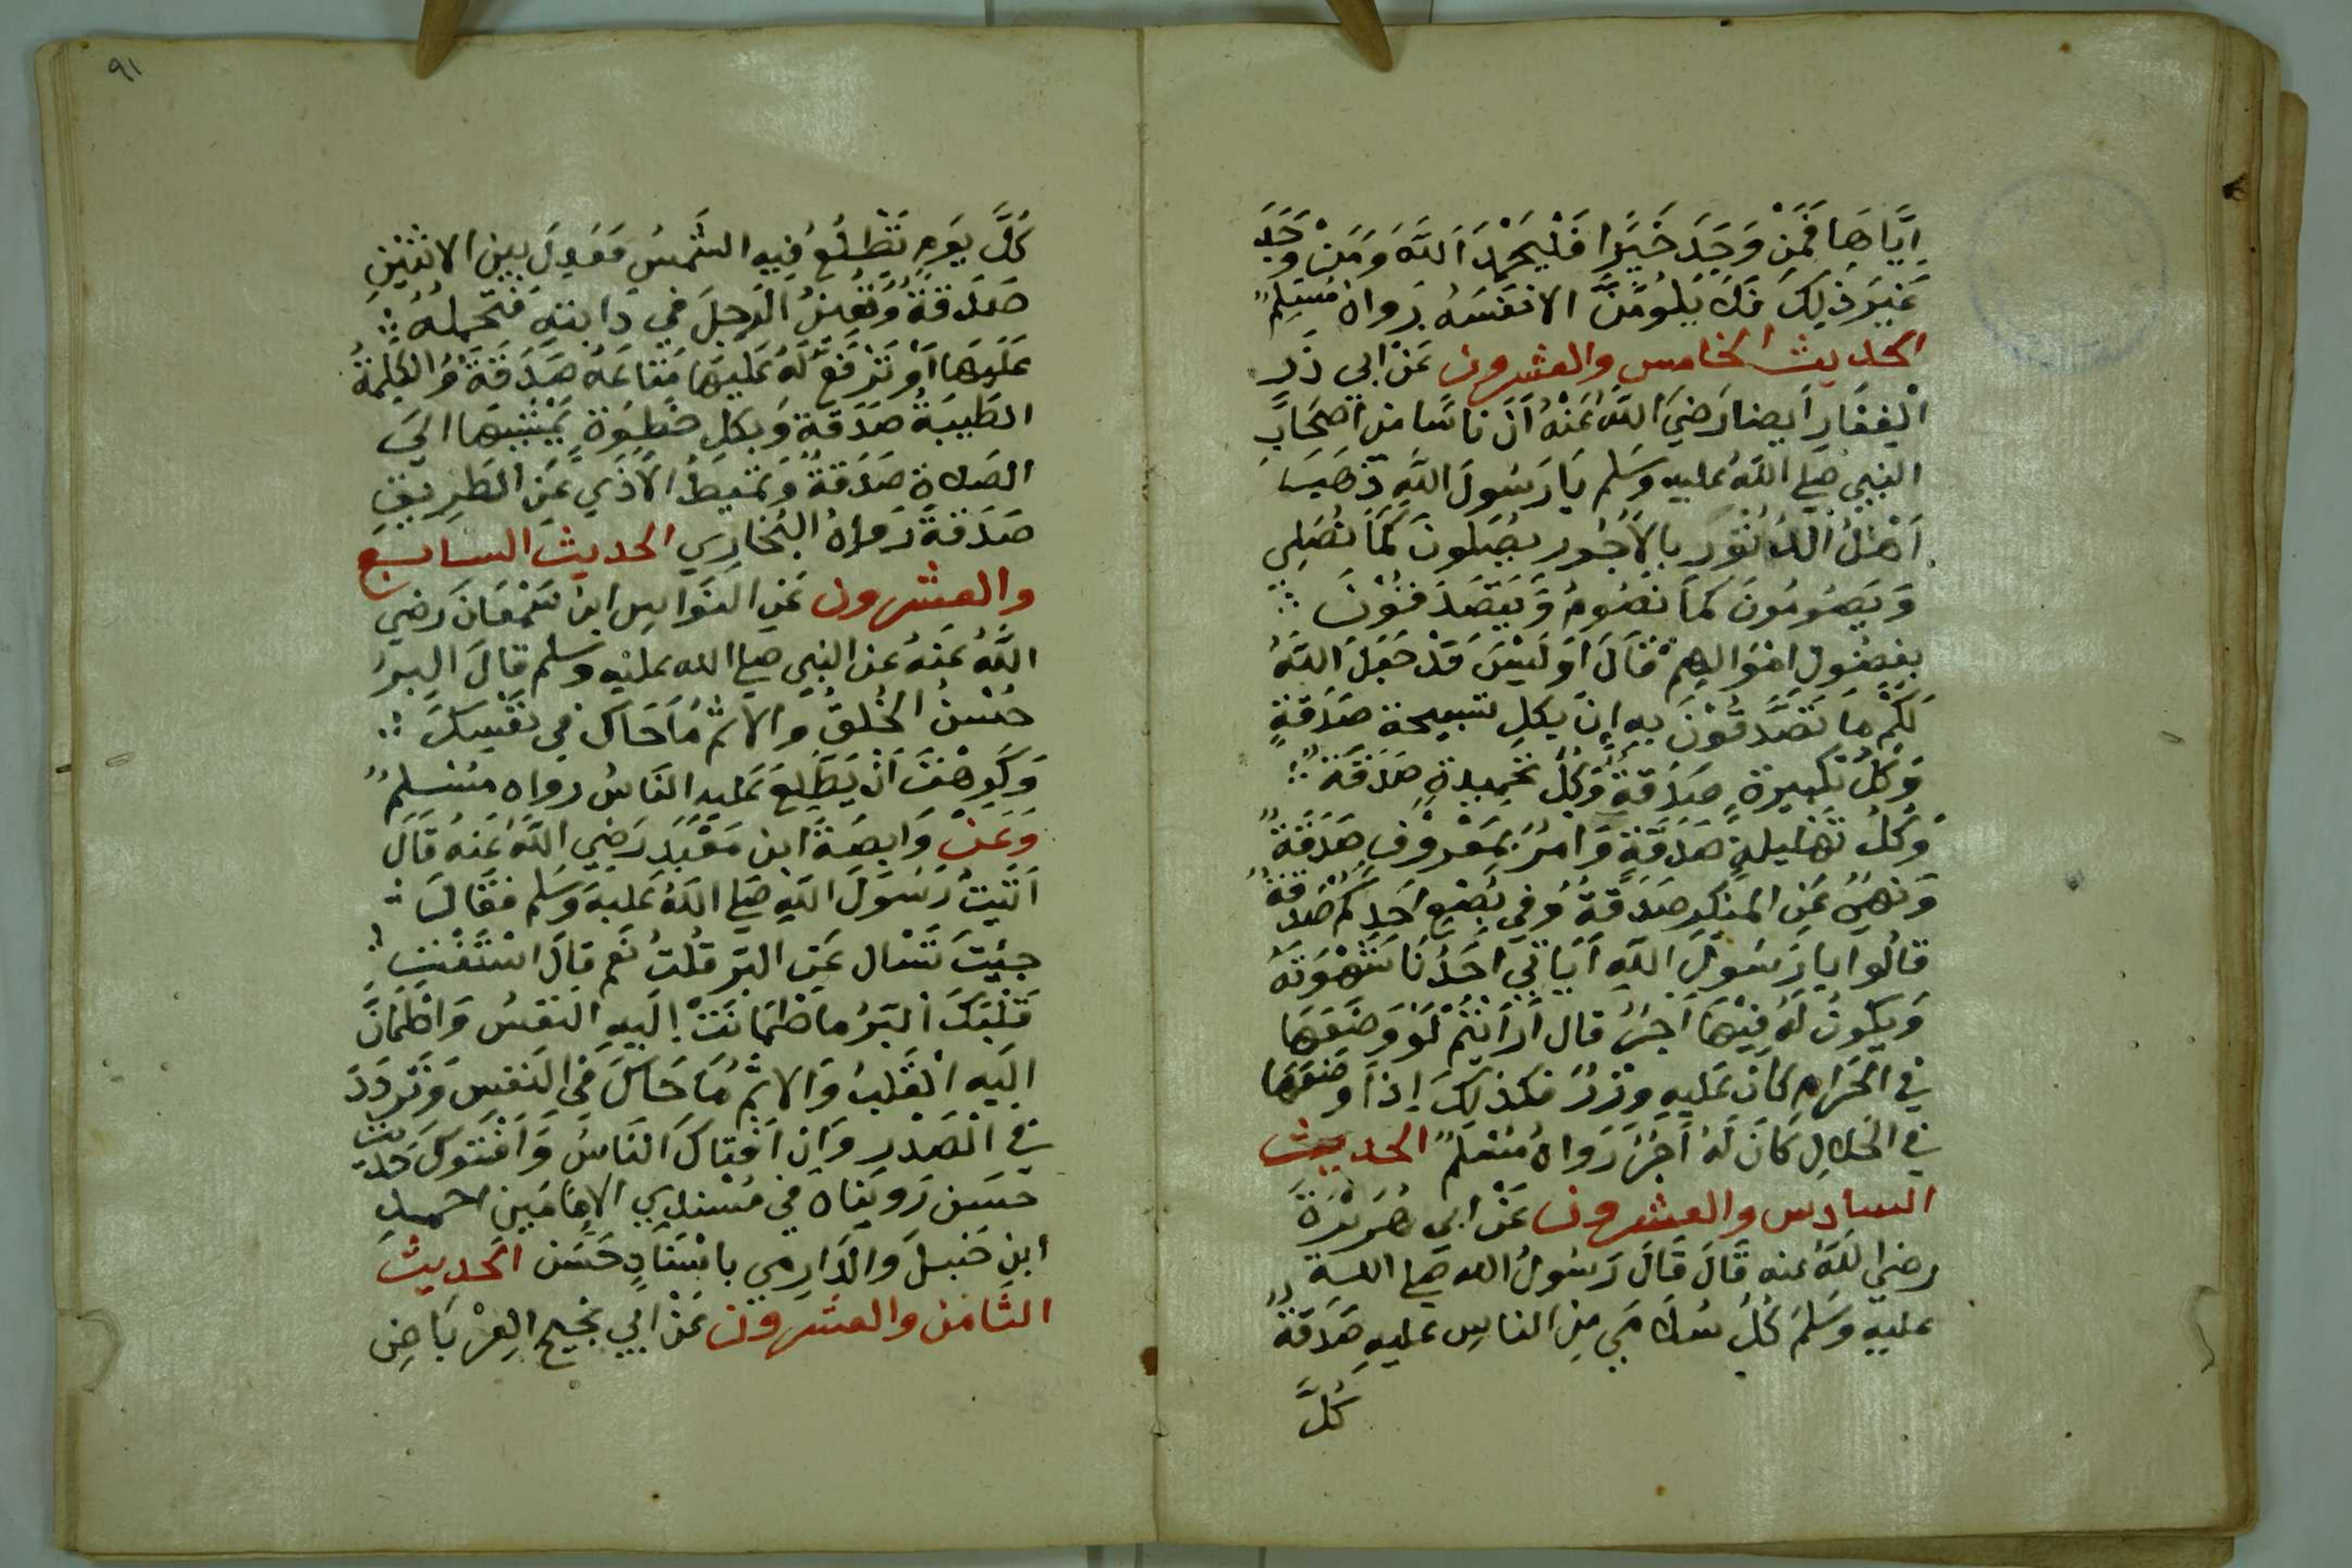 اِيَّاهَا فَمَنْ وَجَدَ خَيْرًا فَلْيَحْمَدَ اللَّهَ وَمَنْ وَجَدَ
غَيْرَ ذٰلِكَ فَلَا يَلُوْمَنَّ الا نفسَهُ رواه مُسْلِمٌ
الحديث الخامس والعشرون عَنْ ابي ذَرٍ
الْغِفَارِ اَيضا رَضيَ اللَّهُ عَنْهُ اَنَّ نَاسًا من اَصْحَابِ
النبي صلي اللَّهُ عليه وسَلم يَا رَسُولَ اللَّهِ ذَهَبَ
اَهْلُ الدُثُوْرِ بِالاُجُورِ يصُلونَ كَمَا نُصَلِي
وَيَصُوْمُونَ كَمَا نَصُوْمُ وَيَتَصَدَقُوْنَ
بِفضُولِ اَموَالِهِمْ قَالَ اَوَلَيْسَ قَدْ جَعَلَ اللَّهُ
لَكُمْ مَا تَصَّدَّقُوْنَ بِهِ إِنَ بِكلِ تسبيحة صَدَقَةٍ
وَكلُ تكبيرة صَدَقَةٌ وَكلُ تحميدةٍ صَدَقَةٌ
وَكلُ تَهْليلةٍ صَدَقَةٍ وَامرٌ بِمَعْروْفٍ صَدَقَةٌ
وَنَهيٌ عَنِ المنكَرِ صَدَقَةٌ وَفي بُضْعِ اَحَدِكُم صَدَقَةٌ
قَالُوا يَا رَسُولَ اللَّهِ اَيَاتي اَحَدُنَا شَهْوَتَهُ
وَيَكونُ لَهُ فِيْهَا اَجْرٌ قال اَرَاَيتُمْ لَوْ وَضَعَهَا
في الحَرَامِ كَانَ عَليهِ وِزْرٌ فكذلِكَ اِذَا وضعَهَا
في الحَلالِ كَانَ لَهُ اَجْرٌ رَوَاهُ مُسْلَمٌ الحديث
السادس والعشرون عَنْ ابي هُرَيْرَةَ
رضي اللَّهُ عنه قَالَ قَالَ رَسُولُ الله صلي اللهُ
عليهِ وَسَلمَ كُلُ سُلَامَي مِنَ الناسِ عليهِ صَدَقَةٌ
كُلَّ
٩١
كُلَّ يَومٍ تَطْلُعُ فِيهِ الشَّمْسُ فَعَدِلَ بَينَ الاثنَيْنِ
صَدَقَةٌ وَتُعِينُ الرَجلَ في دَابتهِ فَتَحْمِلهُ
عَلَيهَا اَوْ تَرْفَعُ لَهُ عَليهَا مَتَاعَهُ صَدَقَةٌ وَالكَلِمَةُ
الطَيِبَةُ صَدَقَةٌ وَبِكلِ خُطْوَةٍ تَمْشيهَا الَي
الصَلاةِ صَدَقَةٌ وَتُميطُ الاَذَي عَنِ الطَرِيقِ
صَدَقَةٌ رَوَاهُ البُخَارِي الحديث السابع
والعشرون عَنِ النَوَاسِ ابنُ سَمْعَانَ رَضي
اللَّهُ عَنهُ عن النبي صلي الله عليْه وسلم قالَ البِرُ
حُسْنُ الخُلقِ وَالاِثْمُ مَا حَاكَ في نَفْسِكَ
وَكَرِهْتَ اَنْ يَطَّلِعَ عَليهِ النَاسُ رواه مسْلِمٌ
وَعَنْ وَابِصَةَ ابن مَعْبَدِ رَضِي اللَّهُ عَنهُ قَالَ
اَتَيتُ رَسُوْلَ اللَّهِ صَلي اللَّهُ عَليهَ وَسَلم فقَالَ
جِئْتَ تَسْال عَنِ البّرِ قُلتُ نَعَم قالَ اسْتَفْتِ
قَلْبَكَ اَلبَرُ مَا طْمَانَتْ اِلَيهِ النَفْسُ وَاطْمَانَّ
اِلَيهِ الْقَلبُ وَالاِثْمُ مَا حَاكَ في النَفسِ وَتَرَدَدَ
في الْصَدْرِ وَاِن اَفْتاكَ النَاسُ وَاَفْتَوكَ حَديث
حَسَن رَوَينَاهُ في مُسْنَدِي الاِمَامَينِ احمد
ابنِ حَنبَلَ والدَارِمي بِاسْنَادٍ حَسَن الحَديث
الثامن والعشرون عَنْ ابي نجيح العِرْبَاضِ